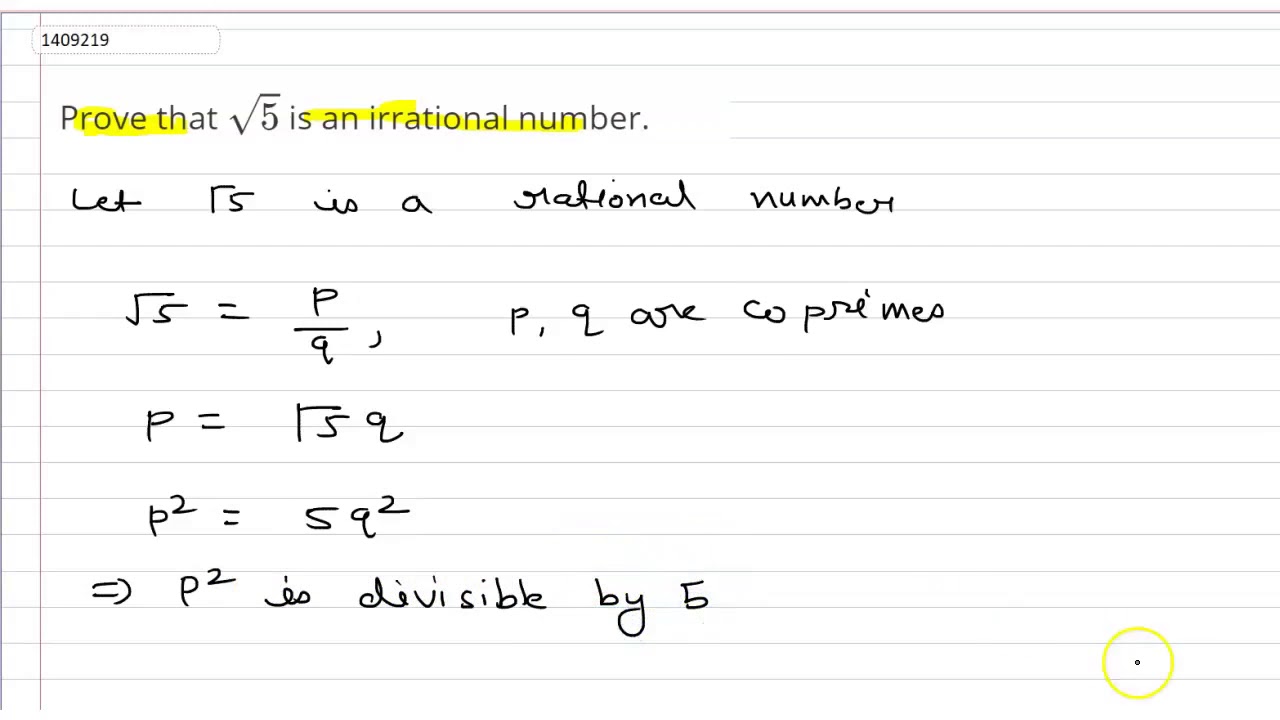 1409219
Prove that √5 is an irrational number.
Let √5 is a rational number
√5 = p/q, p, q are coprimes
p = √5 q
p² = 5q²
⇒ p² is divisible by 5